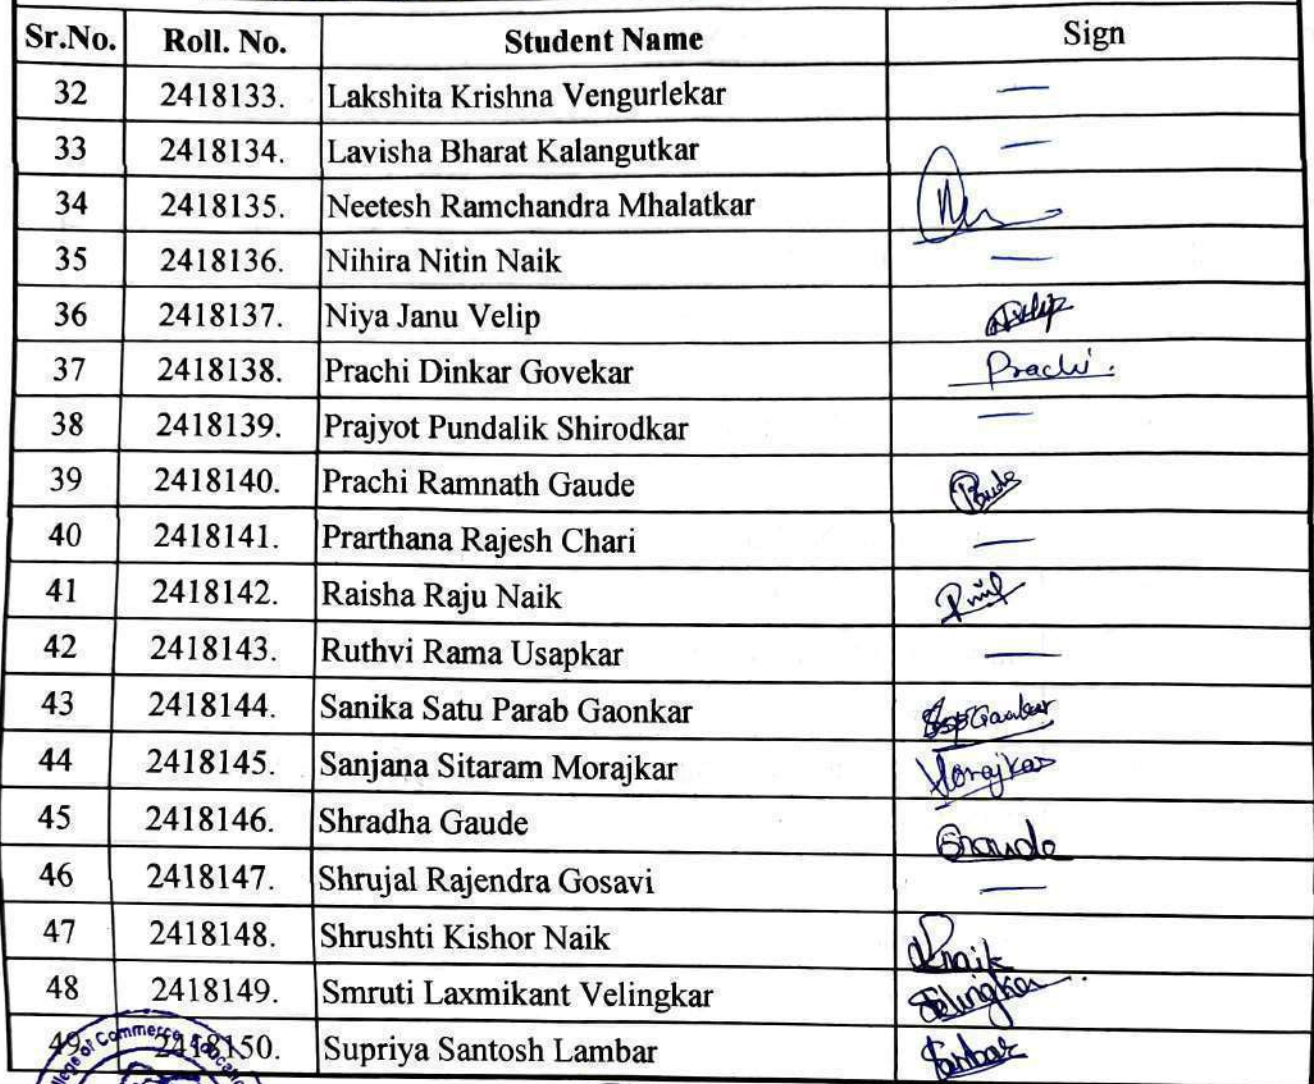 Sr.No. Roll. No. Student Name Sign
32 2418133. Lakshita Krishna Vengurlekar —
33 2418134. Lavisha Bharat Kalangutkar —
34 2418135. Neetesh Ramchandra Mhalatkar
35 2418136. Nihira Nitin Naik —
36 2418137. Niya Janu Velip
37 2418138. Prachi Dinkar Govekar Prachi.
38 2418139. Prajyot Pundalik Shirodkar —
39 2418140. Prachi Ramnath Gaude
40 2418141. Prarthana Rajesh Chari —
41 2418142. Raisha Raju Naik
42 2418143. Ruthvi Rama Usapkar —
43 2418144. Sanika Satu Parab Gaonkar
44 2418145. Sanjana Sitaram Morajkar Morajkar
45 2418146. Shradha Gaude
46 2418147. Shrujal Rajendra Gosavi —
47 2418148. Shrushti Kishor Naik
48 2418149. Smruti Laxmikant Velingkar
49 2418150. Supriya Santosh Lambar
of Commerce